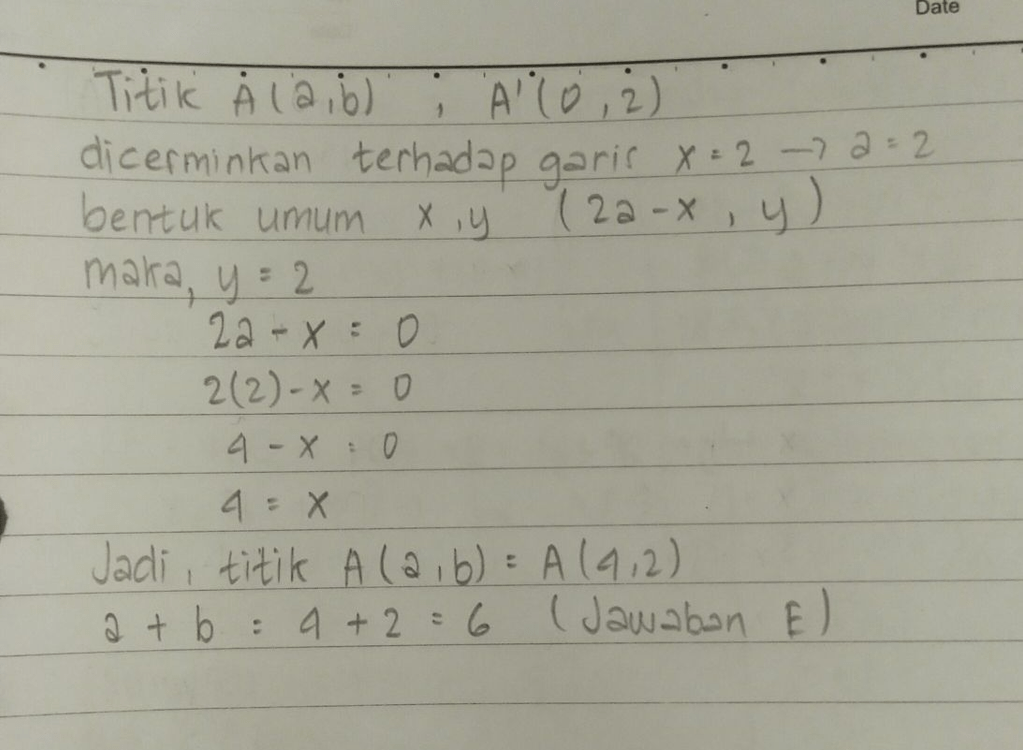 Date
Titik A(a,b) , A'(0,2)
dicerminkan terhadap garis x = 2 → a = 2
bentuk umum x,y (2a - x, y)
maka, y = 2
2a - x = 0
2(2) - x = 0
4 - x = 0
4 = x
Jadi, titik A(a,b) = A(4,2)
a + b = 4 + 2 = 6 (Jawaban E)